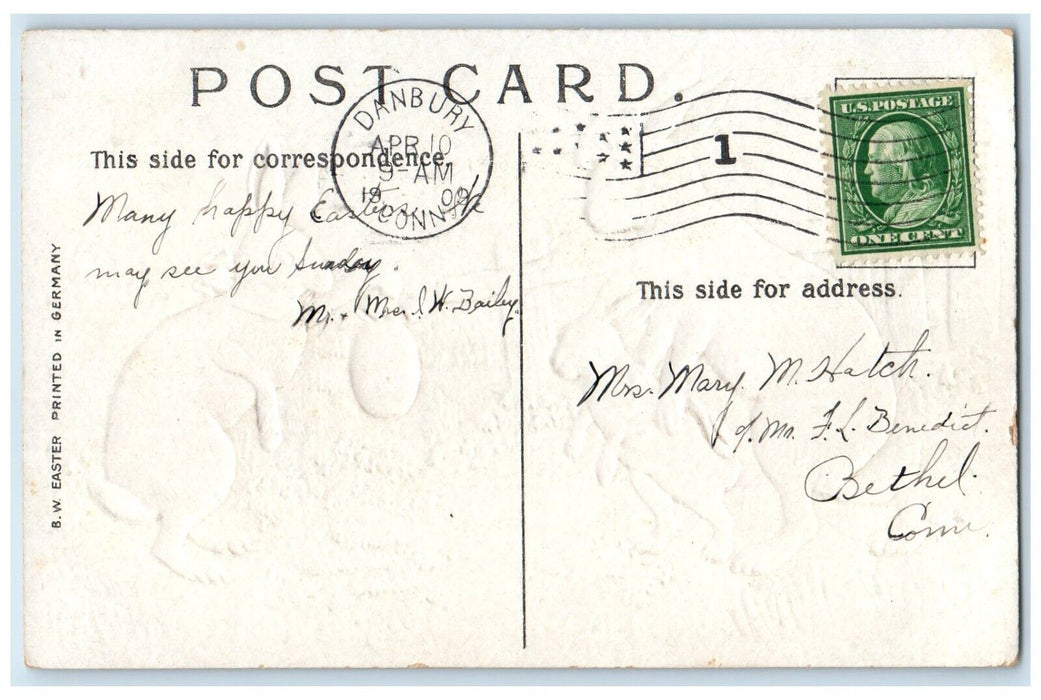 POST CARD.
DANBURY
APR 10
9-AM
1909
CONN.
1
U.S. POSTAGE
ONE CENT
This side for correspondence.
Many happy Easters.
may see you Sunday.
Mr. + Mrs. I. W. Bailey.
This side for address.
Mrs. Mary. M. Hatch.
c/o. Mr. F. L. Benedict.
Bethel.
Conn.
B.W. EASTER PRINTED IN GERMANY